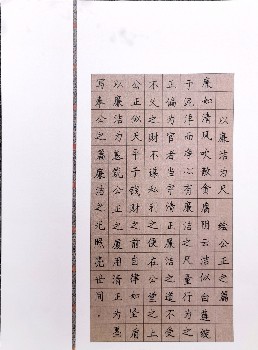 以廉洁为尺 绘公正之篇
廉如清风吹散贪腐阴云洁似白莲绽
于泥淖而净心有廉洁之尺量行为之
正偏为官者当守清正廉洁之道不爱
不义之财不谋私利之便在公堂之上
公正似天平于钱财之前自律如坚盾
以廉洁为基筑公正之厦用清正为墨
写奉公之篇廉洁之光照亮世间.